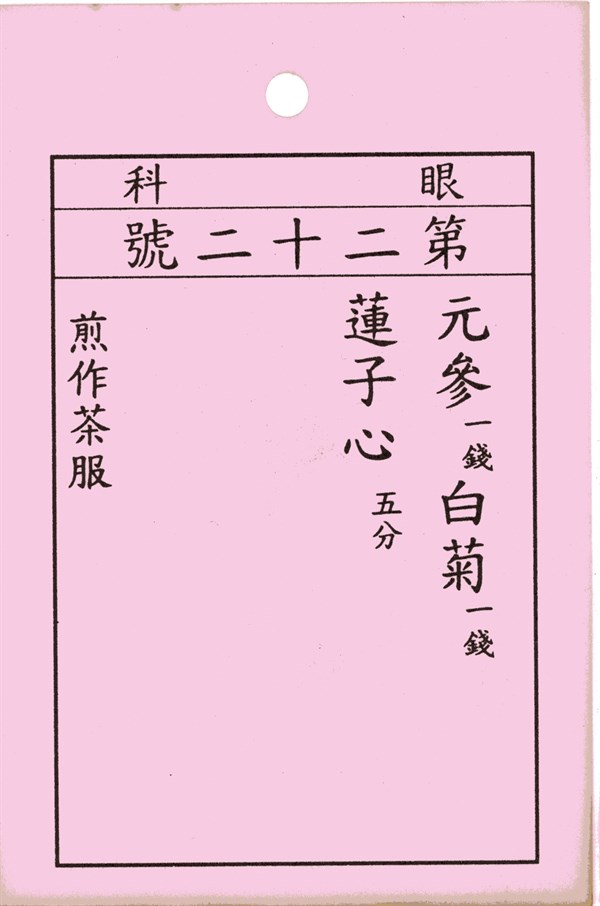 眼科
第二十二號
元參一錢白菊一錢
蓮子心五分
煎作茶服